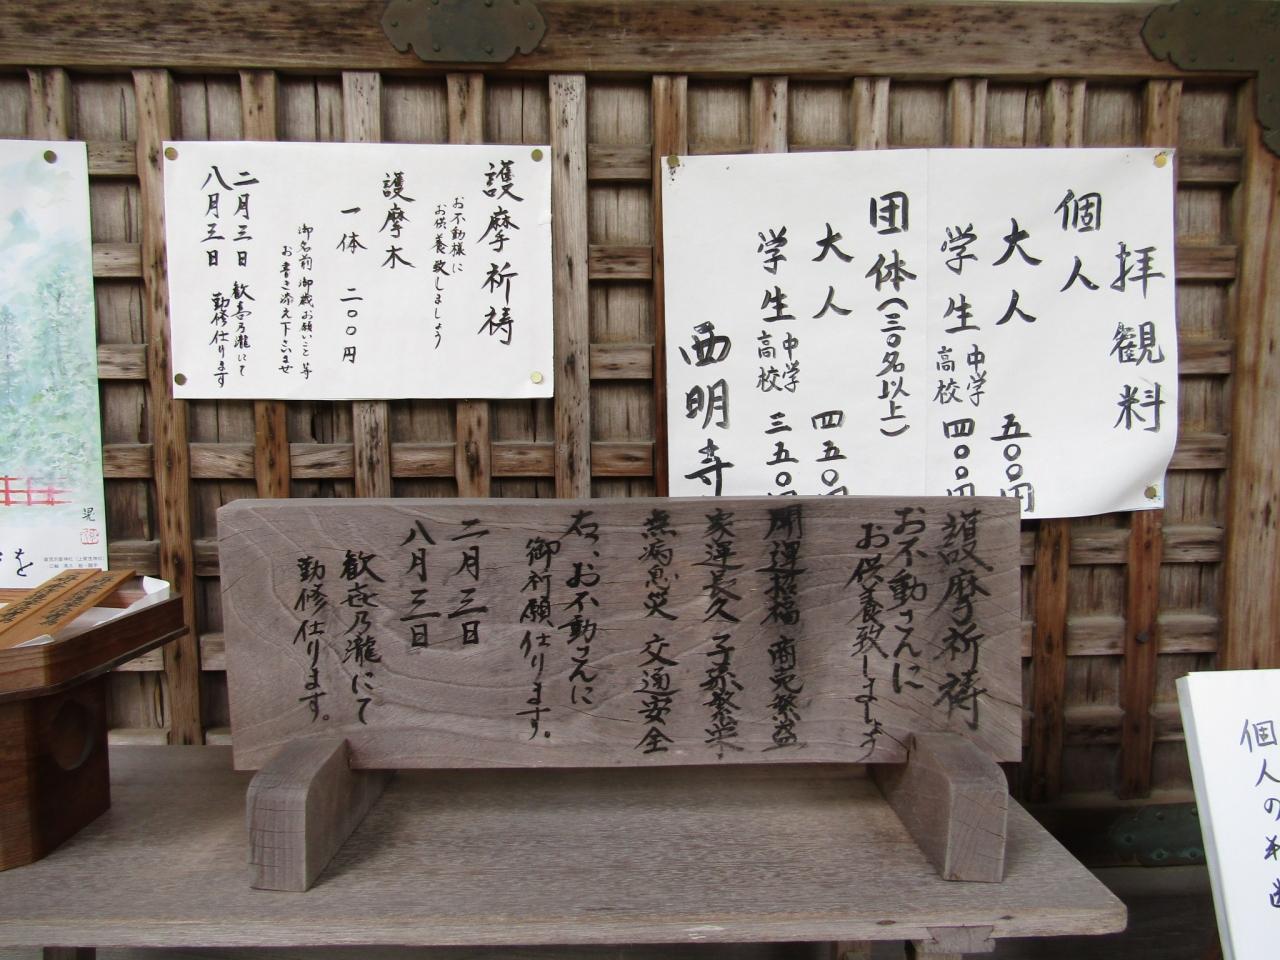 拝観料
個人
大人 五〇〇円
学生 中学高校 四〇〇円
団体(三〇名以上)
大人 四五〇
学生 中学高校 三五〇
西明寺
護摩祈祷
お不動様に
お供養致しましょう
護摩木
一体 二〇〇円
御名前御歳お願いごと等
お書き添え下さいませ
二月三日 歓喜乃瀧にて
八月三日 勤修仕ります
護摩祈祷
お不動さんに
お供養致しましょう
開運招福 商売繁盛
家運長久 子孫繁栄
無病息災 交通安全
右、お不動さんに
御祈願仕ります。
二月三日
八月三日
歓喜乃瀧にて
勤修仕ります。
晃
を
個人の